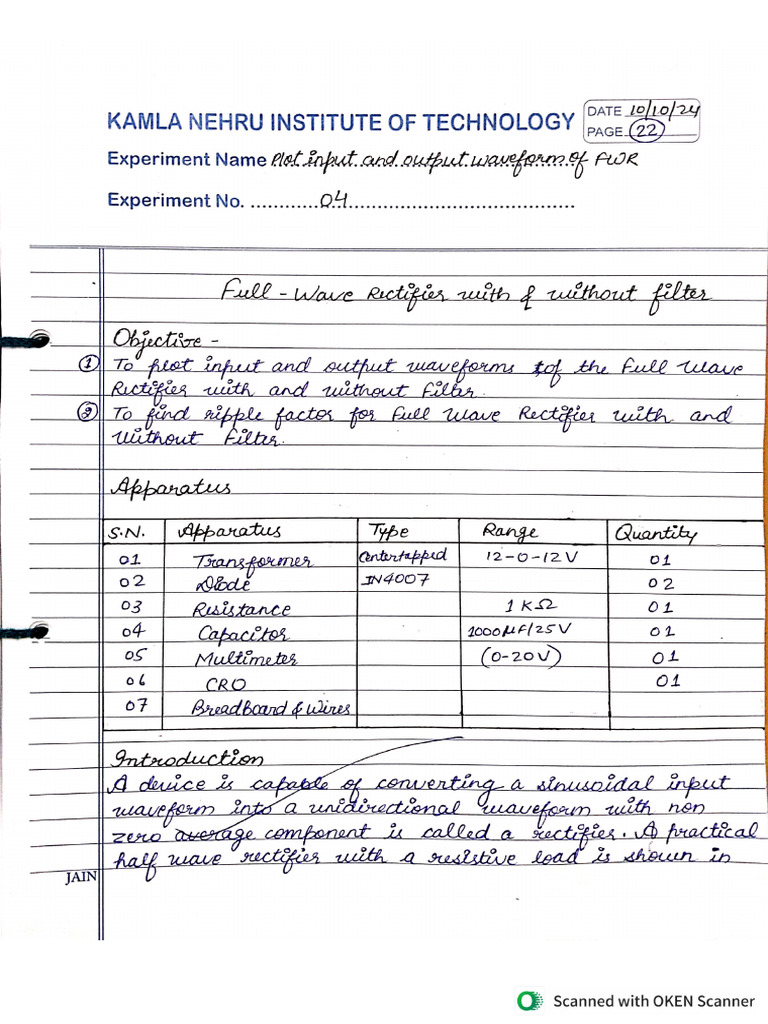 KAMLA NEHRU INSTITUTE OF TECHNOLOGY
DATE 10/10/24
PAGE 22
Experiment Name Plot input and output waveform of FWR
Experiment No. ............04......................................
Full - Wave Rectifier with & without filter
Objective -
① To plot input and output waveforms of the Full Wave
Rectifier with and without Filter.
② To find ripple factor for Full Wave Rectifier with and
Without Filter.
Apparatus
S.N. Apparatus Type Range Quantity
01 Transformer Centertapped 12-0-12V 01
02 Diode IN4007 02
03 Resistance 1 KΩ 01
04 Capacitor 1000μF/25V 01
05 Multimeter (0-20V) 01
06 CRO 01
07 Breadboard & Wires
Introduction
A device is capable of converting a sinusoidal input
waveform into a unidirectional waveform with non
zero average component is called a rectifies. A practical
half wave rectifies with a resistive load is shown in
JAIN
Scanned with OKEN Scanner